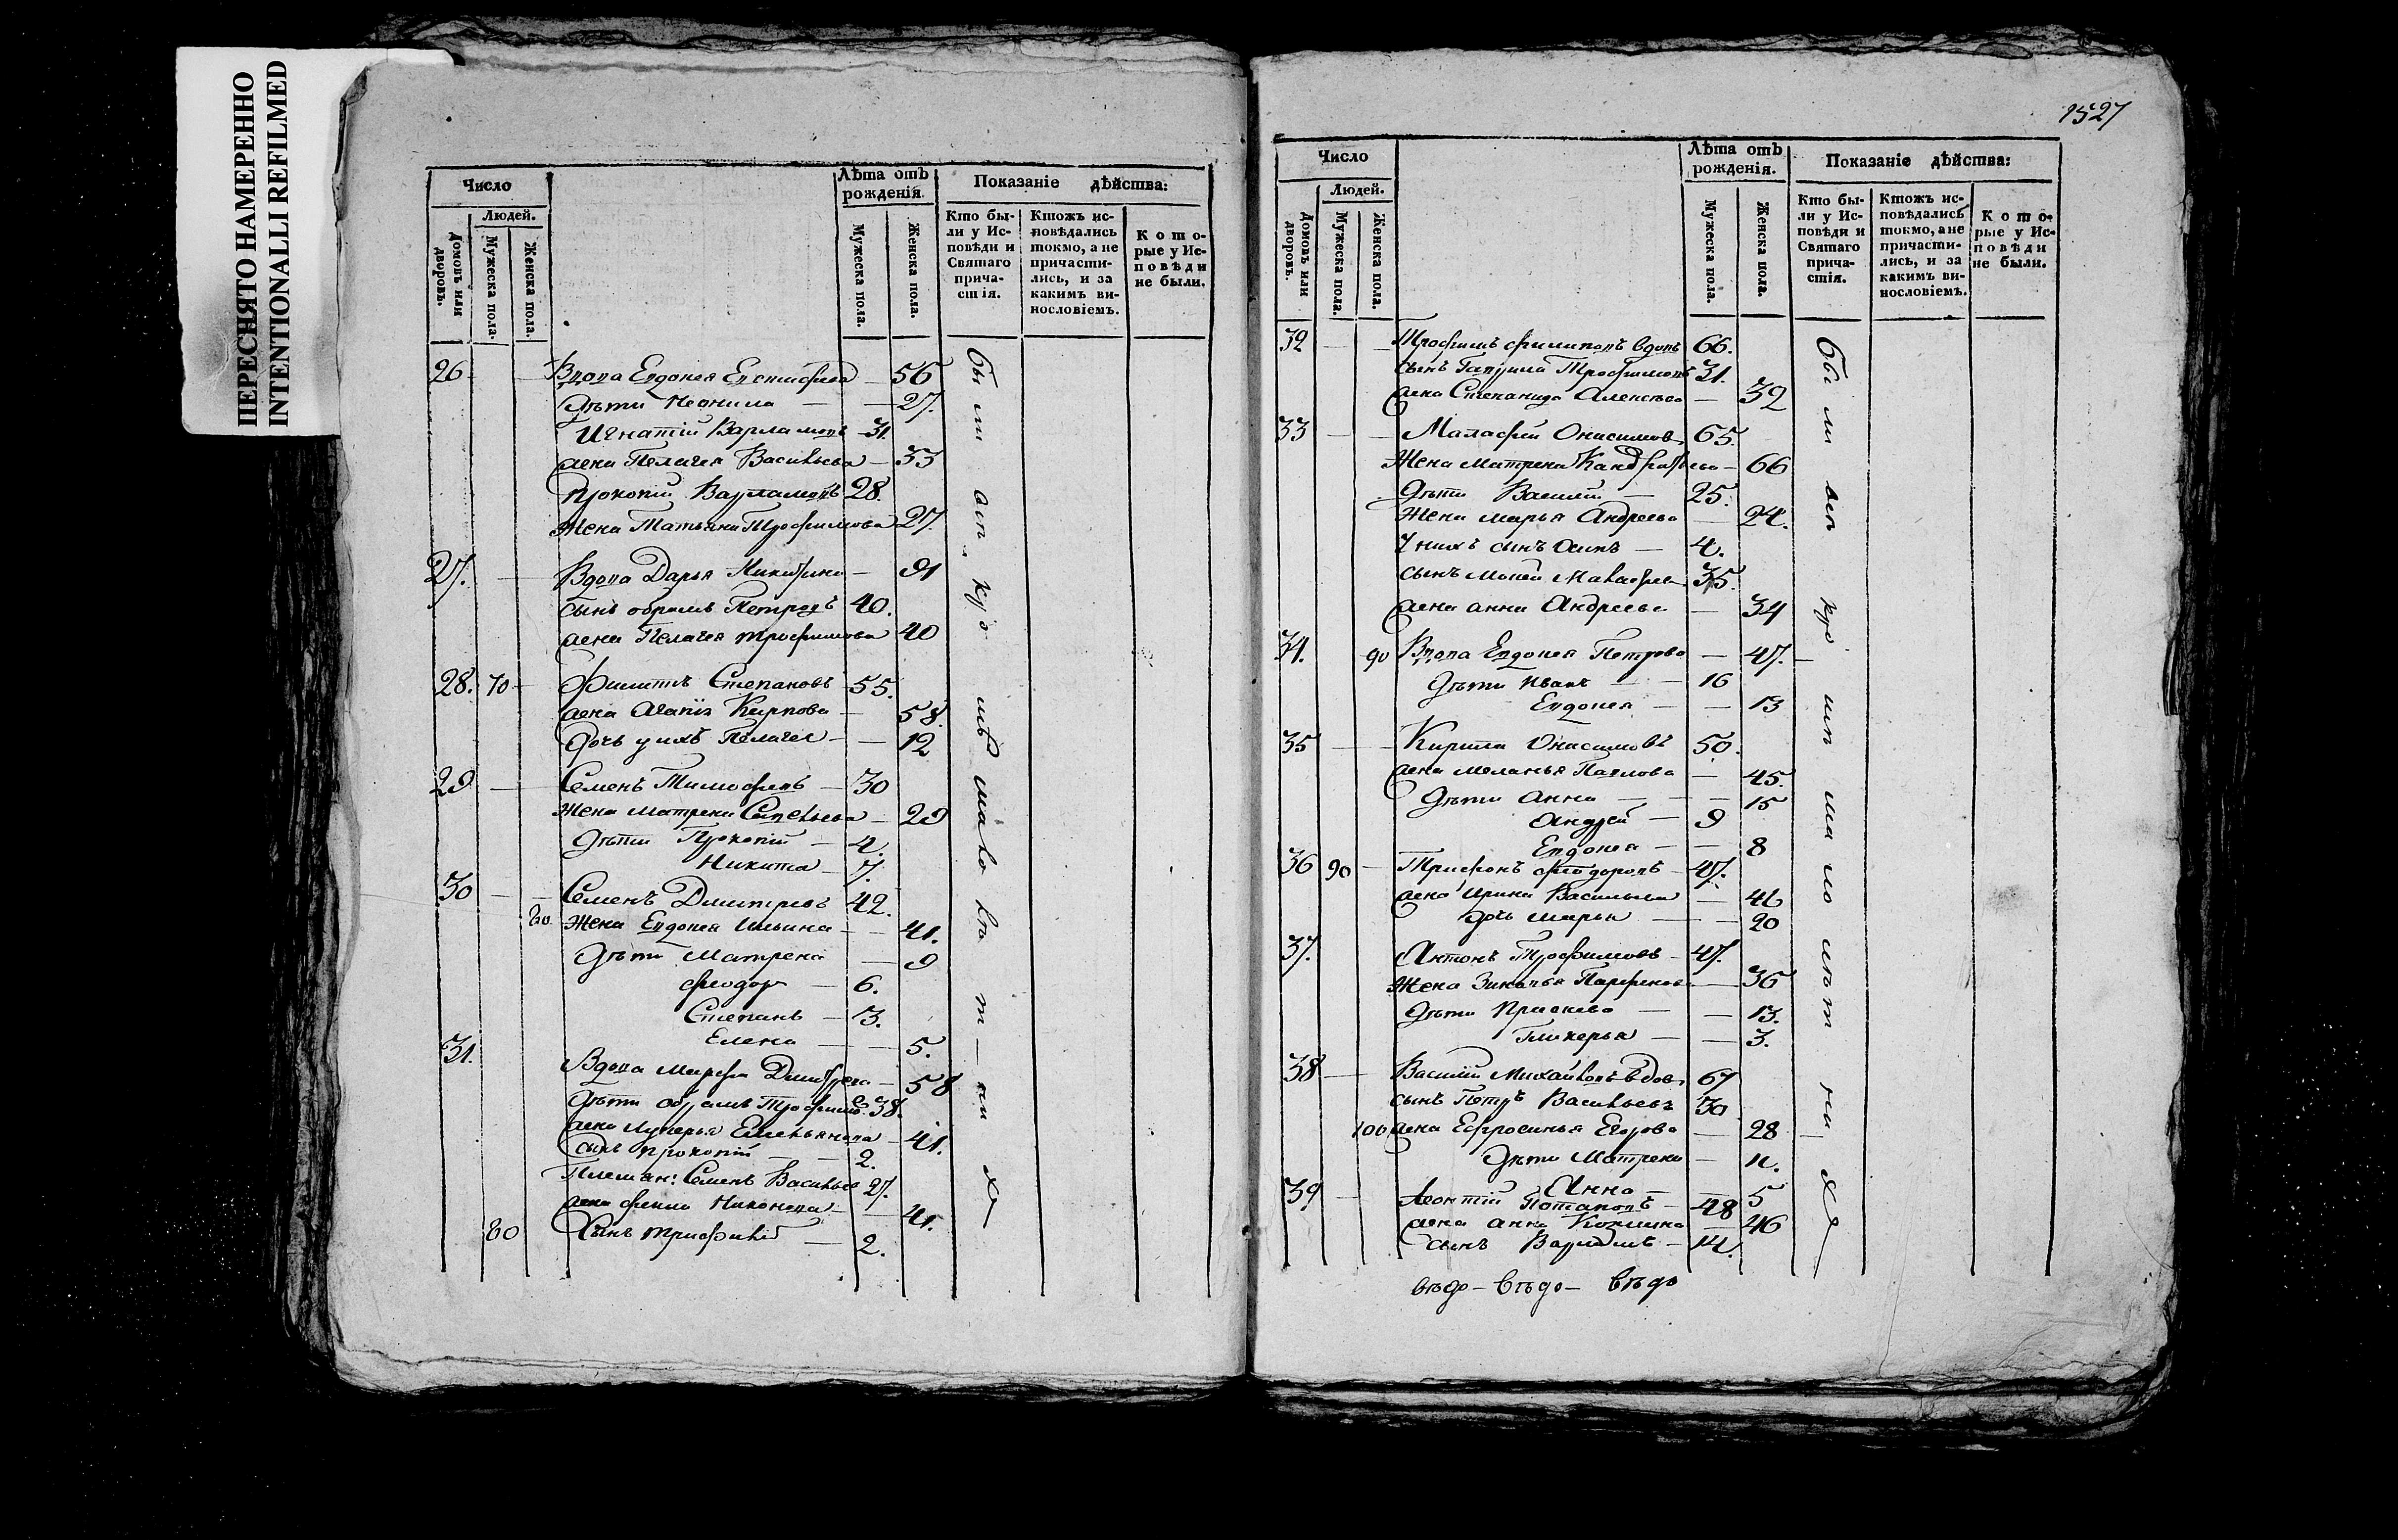 ПЕРЕСНЯТО НАМЕРЕННО
INTENTIONALLI REFILMED
Число
Людей.
Домовъ или дворовъ.
Мужеска пола.
Женска пола.
Лѣта отъ рожденія.
Мужеска пола.
Женска пола.
Показаніе дѣйства:
Кто бы-
ли у Ис-
повѣди и
Святаго
прича-
стія.
Ктожъ ис-
повѣдались
токмо, а не
причасти-
лись, и за
какимъ ви-
нословіемъ.
Кото-
рые у Ис-
повѣди
не были.
26 Вдова Евдокея Евстифева 56
Дѣти Неонила 27.
Игнатій Варламовъ 31.
жена Пелагея Васильева 33
Прокопій Варламовъ 28.
Жена Татьяна Трофимова 27.
27. Вдова Дарья Никитина 91
сынъ Абрамъ Петровъ 40.
жена Пелагея Трофимова 40
28. 70 Филиппъ Степановъ 55.
жена Карпова 58.
дочь у ихъ Пелагея 12
29 Семенъ Тимофѣевъ 30
Жена Матрена Савельева 29
Дѣти Прокопій 4.
Никита 7.
30 Семенъ Дмитріевъ 42.
80 Жена Евдокея Ильина 41.
Дѣти Матрена 9
Феодоръ 6.
Степанъ 3.
Елена 5.
31. Вдова Марфа 58
Дѣти Абрамъ Трофимов. 38.
жена Лукерья Емельянова 41.
сынъ Прокопій 2.
Племян: Семенъ Васильев 27.
жена Никонова 41.
80 Сынъ Трифилій 2.
1527
Число
Людей.
Домовъ или дворовъ.
Мужеска пола.
Женска пола.
Лѣта отъ рожденія.
Мужеска пола.
Женска пола.
Показаніе дѣйства:
Кто бы-
ли у Ис-
повѣди и
Святаго
прича-
стія.
Ктожъ ис-
повѣдались
токмо, а не
причасти-
лись, и за
какимъ ви-
нословіемъ.
Кото-
рые у Ис-
повѣди
не были.
32 Трофимъ Филиповъ вдовъ 66.
сынъ Гаврила Трофимовъ 31.
жена Степанида Алексѣева 32
33 Малафей Онисимов 65.
Жена Матрена Кандратьева 66
Дѣти Василій 25.
Жена Марья Андреева 24.
У нихъ сынъ 4.
сынъ Малафеев 35.
жена Анна Андреева 34
34. 90 Вдова Евдокея Петрова 47.
Дѣти Иванъ 16
Евдокея 13
35 Кирила Онисимовъ 50.
жена Меланья Павлова 45.
Дѣти Анна 15
Андрей 9
Евдокея 8
36 90 Трифонъ Феодоровъ 47.
жена Ирина Васильева 46
дочь Марья 20
37. Антонъ Трофимовъ 47.
Жена Парфенова 36
Дѣти Прасковья 13.
Гликерья 3.
38 Василій Михайловъ вдов. 67
сынъ Петръ Васильевъ 30
100 жена Ефросинья Егорова 28
Дѣти Матрена 11.
Анна 5
39 Леонтій Потаповъ 48
жена Анна Козмина 46
сынъ Варламъ 14.